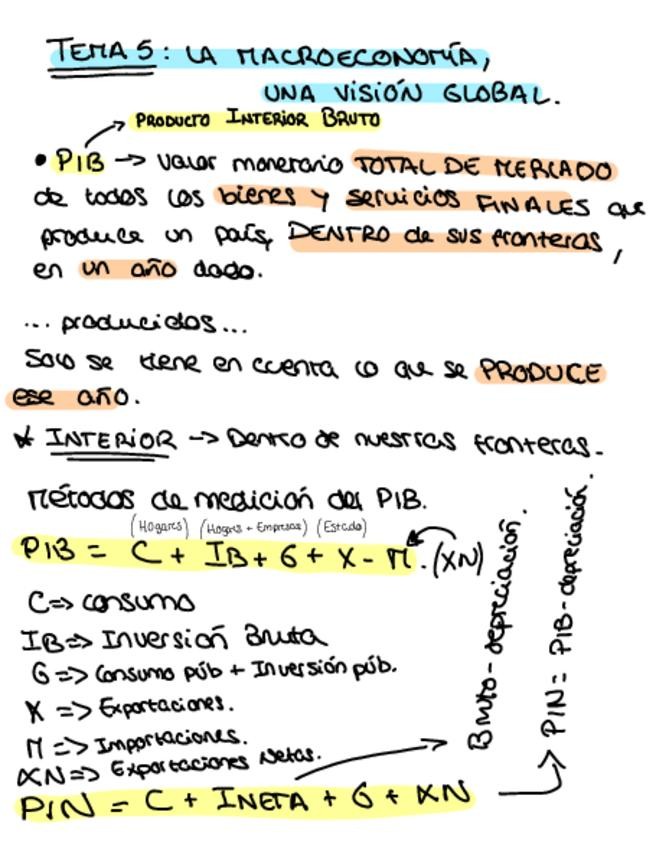 TEMA 5: LA MACROECONOMÍA,
UNA VISIÓN GLOBAL.
PRODUCTO INTERIOR BRUTO
• PIB -> valor monetario TOTAL DE MERCADO
de todos los bienes y servicios FINALES que
produce un país, DENTRO de sus fronteras,
en un año dado.
... producidos...
Solo se tiene en cuenta lo que se PRODUCE
ese año.
* INTERIOR -> Dentro de nuestras fronteras.
Métodos de medición del PIB.
(Hogares) (Hogares + Empresas) (Estado)
PIB = C + IB + G + X - M. (XN)
C => consumo
IB => Inversión Bruta
G => Consumo púb + Inversión púb.
X => Exportaciones.
M => Importaciones.
XN => Exportaciones Netas.
PIN = C + INETA + G + XN
Bruto - depreciación.
PIN = PIB - depreciación.